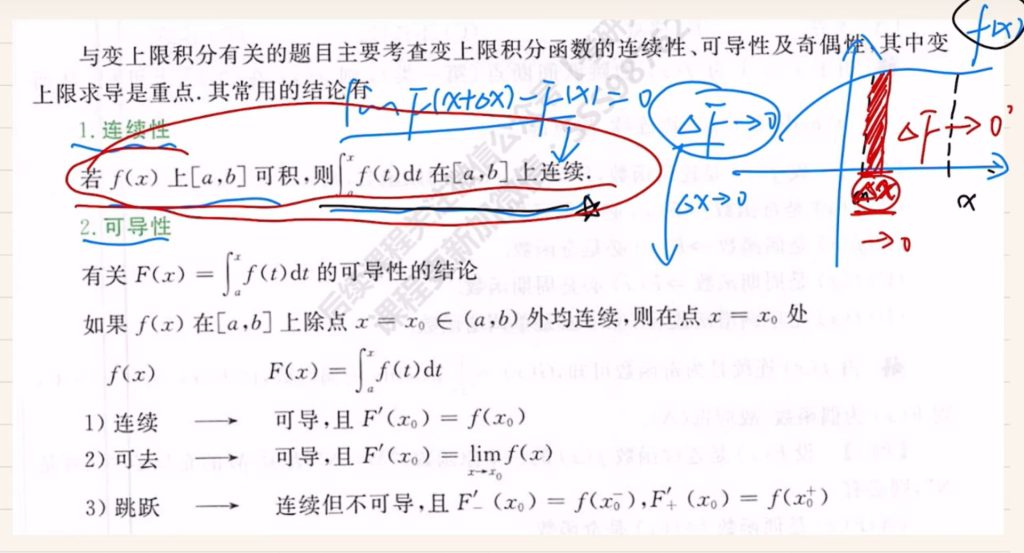 与变上限积分有关的题目主要考查变上限积分函数的连续性、可导性及奇偶性,其中变
上限求导是重点.其常用的结论有
F(x+Δx)-F(x)=0
f(x)
ΔF→0
Δx→0
ΔF→0
Δx
→0
x
1.连续性
若 f(x) 上[a,b]可积,则∫ₐˣ f(t)dt 在[a,b]上连续.
2.可导性
有关 F(x)=∫ₐˣ f(t)dt 的可导性的结论
如果 f(x) 在[a,b]上除点 x=x₀∈(a,b)外均连续,则在点 x=x₀ 处
f(x) F(x)=∫ₐˣ f(t)dt
1) 连续 → 可导,且 F′(x₀)=f(x₀)
2) 可去 → 可导,且 F′(x₀)=lim_{x→x₀} f(x)
3) 跳跃 → 连续但不可导,且 F′₋(x₀)=f(x₀⁻),F′₊(x₀)=f(x₀⁺)